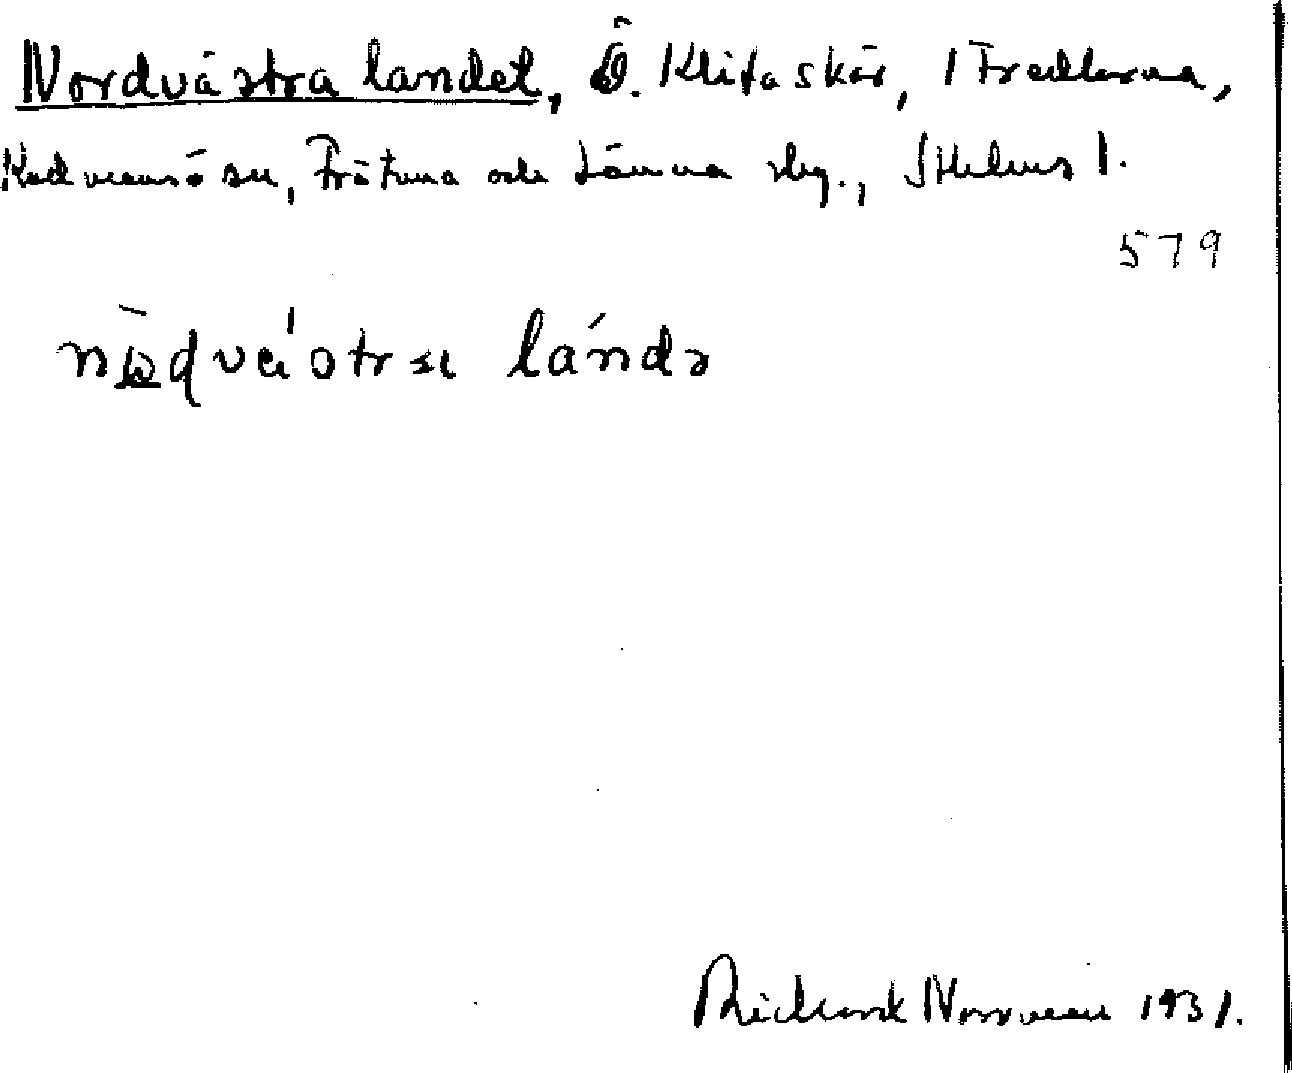 Nordvästra landet, Ö. Klitaskär, i Fredlarna,
Kadmansö sn, Frötuna och Länna slg., Sthlms l.
579
Rickard Norrman 1931.